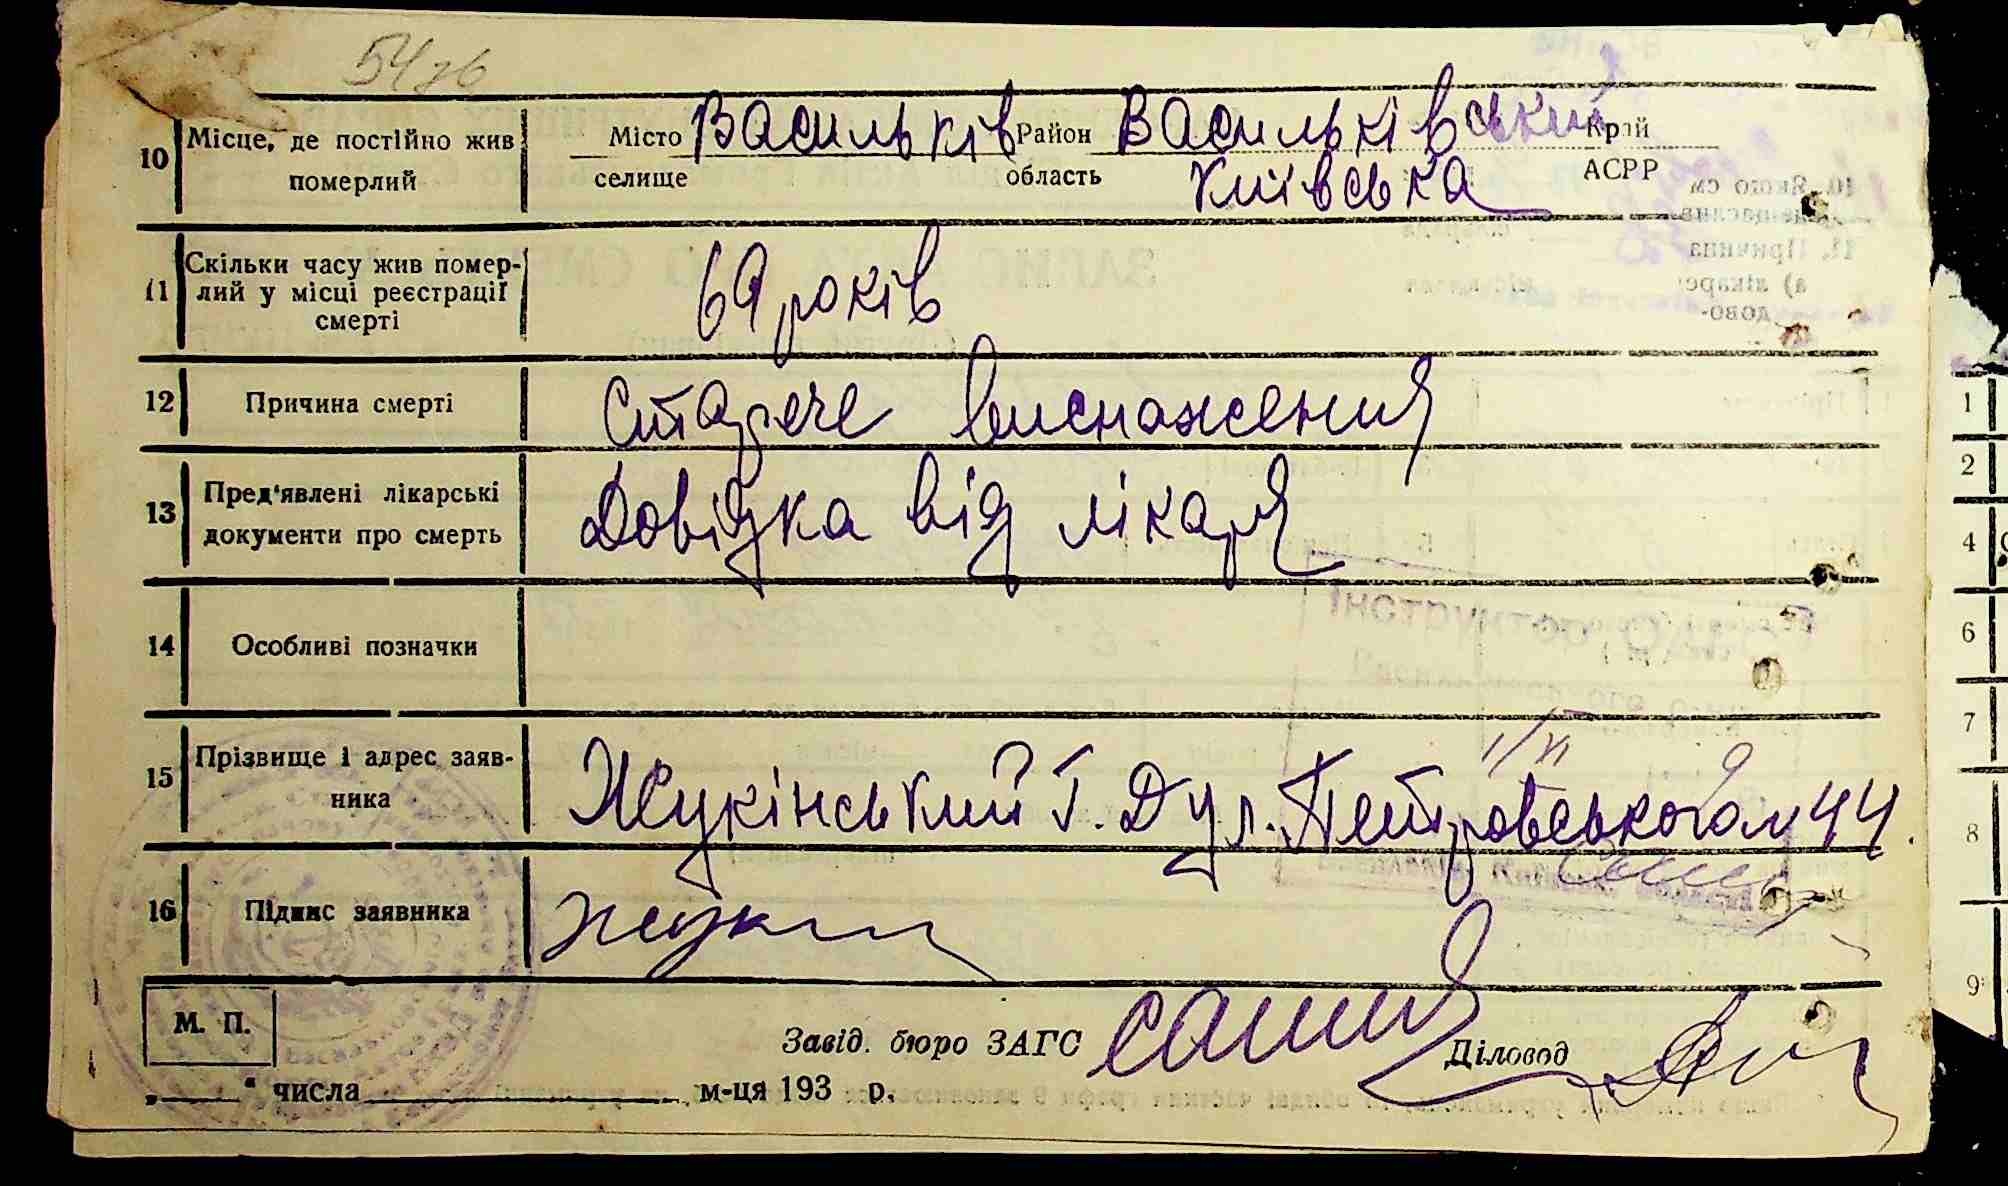 10 Місце, де постійно жив померлий Місто Васильків Район Васильківський Край
селище область Київська АСРР
11 Скільки часу жив помер-
лий у місці реєстрації
смерті 69 років
12 Причина смерті Старече виснаження
13 Пред'явлені лікарські
документи про смерть Довідка від лікаря
14 Особливі позначки
15 Прізвище і адрес заяв-
ника Жукінський Г. Д ул. Петровського 44.
16 Підпис заявника Жукин
М. П.
Завід. бюро ЗАГС Діловод
" числа м-ця 193 р.
1
2
4
6
7
8
9